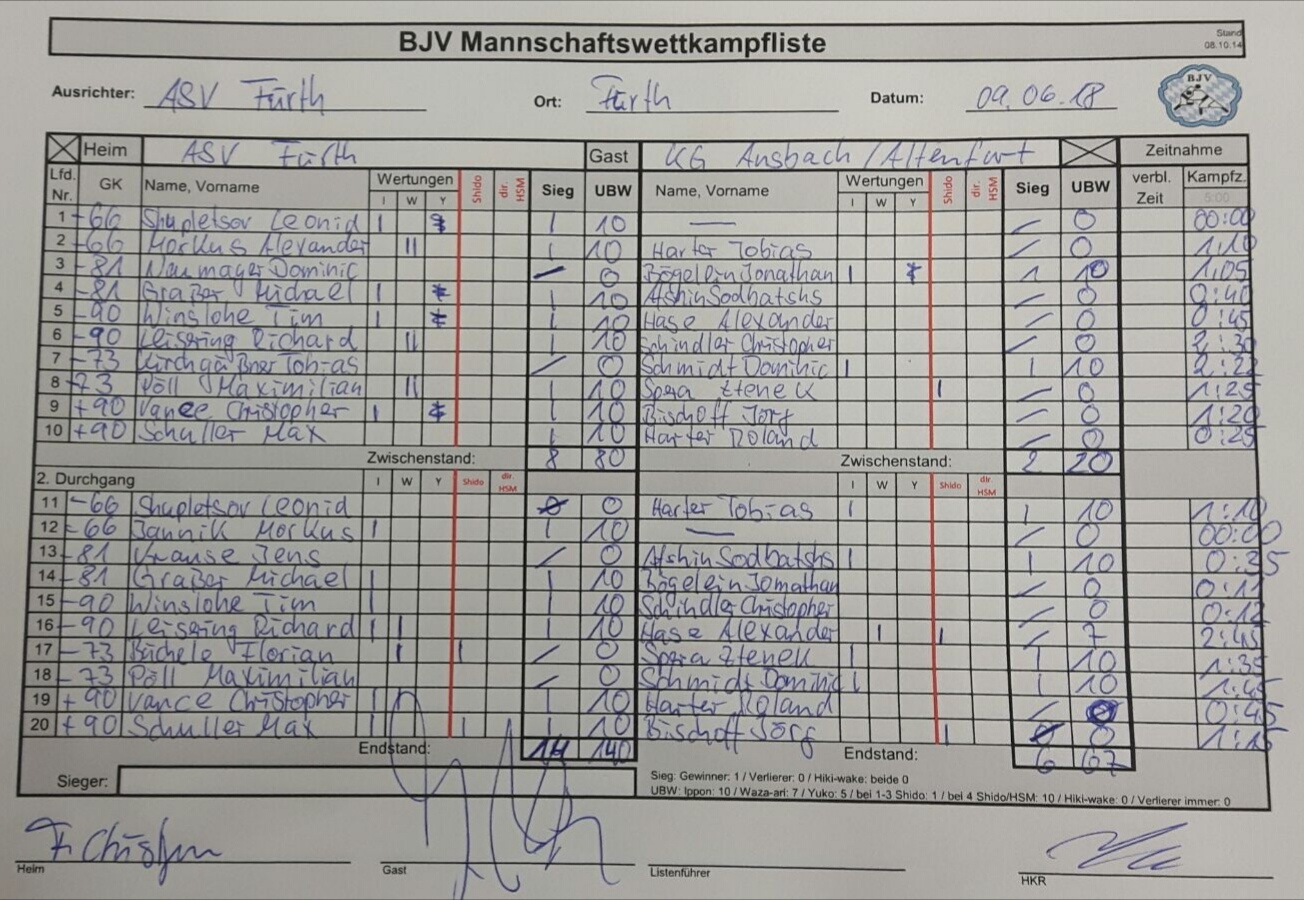 BJV Mannschaftswettkampfliste
Stand
08.10.14
Ausrichter: ASV Fürth Ort: Fürth Datum: 09.06.18
BJV
Heim ASV Fürth Gast KG Ansbach/Altenfurt Zeitnahme
Lfd. Nr. GK Name, Vorname Wertungen I W Y Shido dir. HSM Sieg UBW Name, Vorname Wertungen I W Y Shido dir. HSM Sieg UBW verbl. Zeit Kampfz. 5:00
1 -66 Shupletsov Leonid I 1 10 — / 0 00:00
2 -66 Morkus Alexander II 1 10 Harter Tobias / 0 1:10
3 -81 Neumayer Dominic / 0 Bögelein Jonathan I 1 10 1:05
4 -81 Graßer Michael I 1 10 Afshin Sodbatshs / 0 0:40
5 -90 Winslohe Tim I 1 10 Hase Alexander / 0 0:45
6 -90 Leisering Richard II 1 10 Schindler Christopher / 0 2:30
7 -73 Kirchgäßner Tobias / 0 Schmidt Dominic I 1 10 2:22
8 -73 Pöll Maximilian II 1 10 Spora Ztenek I / 0 1:25
9 +90 Vance Christopher I 1 10 Bischoff Jörg / 0 1:20
10 +90 Schuller Max 1 10 Harter Roland / 0 0:25
Zwischenstand: 8 80 Zwischenstand: 2 20
2. Durchgang I W Y Shido dir. HSM I W Y Shido dir. HSM
11 -66 Shupletsov Leonid 0 Harter Tobias I 1 10 1:10
12 -66 Jannik Morkus I 1 10 — / 0 00:00
13 -81 Krause Jens / 0 Afshin Sodbatshs I 1 10 0:35
14 -81 Graßer Michael I 1 10 Bögelein Jomathan / 0 0:11
15 -90 Winslohe Tim I 1 10 Schindler Christopher / 0 0:12
16 -90 Leisering Richard I I 1 10 Hase Alexander I I / 7 2:45
17 -73 Büchele Florian I I / 0 Spora Ztenek I 1 10 1:35
18 -73 Pöll Maximilian / 0 Schmidt Dominic I 1 10 1:45
19 +90 Vance Christopher I 1 10 Harter Roland / 0 0:45
20 +90 Schuller Max I I 1 10 Bischoff Jörg I 0 1:15
Endstand: 14 140 Endstand: 6 67
Sieger:
Sieg: Gewinner: 1 / Verlierer: 0 / Hiki-wake: beide 0
UBW: Ippon: 10 / Waza-ari: 7 / Yuko: 5 / bei 1-3 Shido: 1 / bei 4 Shido/HSM: 10 / Hiki-wake: 0 / Verlierer immer: 0
Heim Gast Listenführer HKR